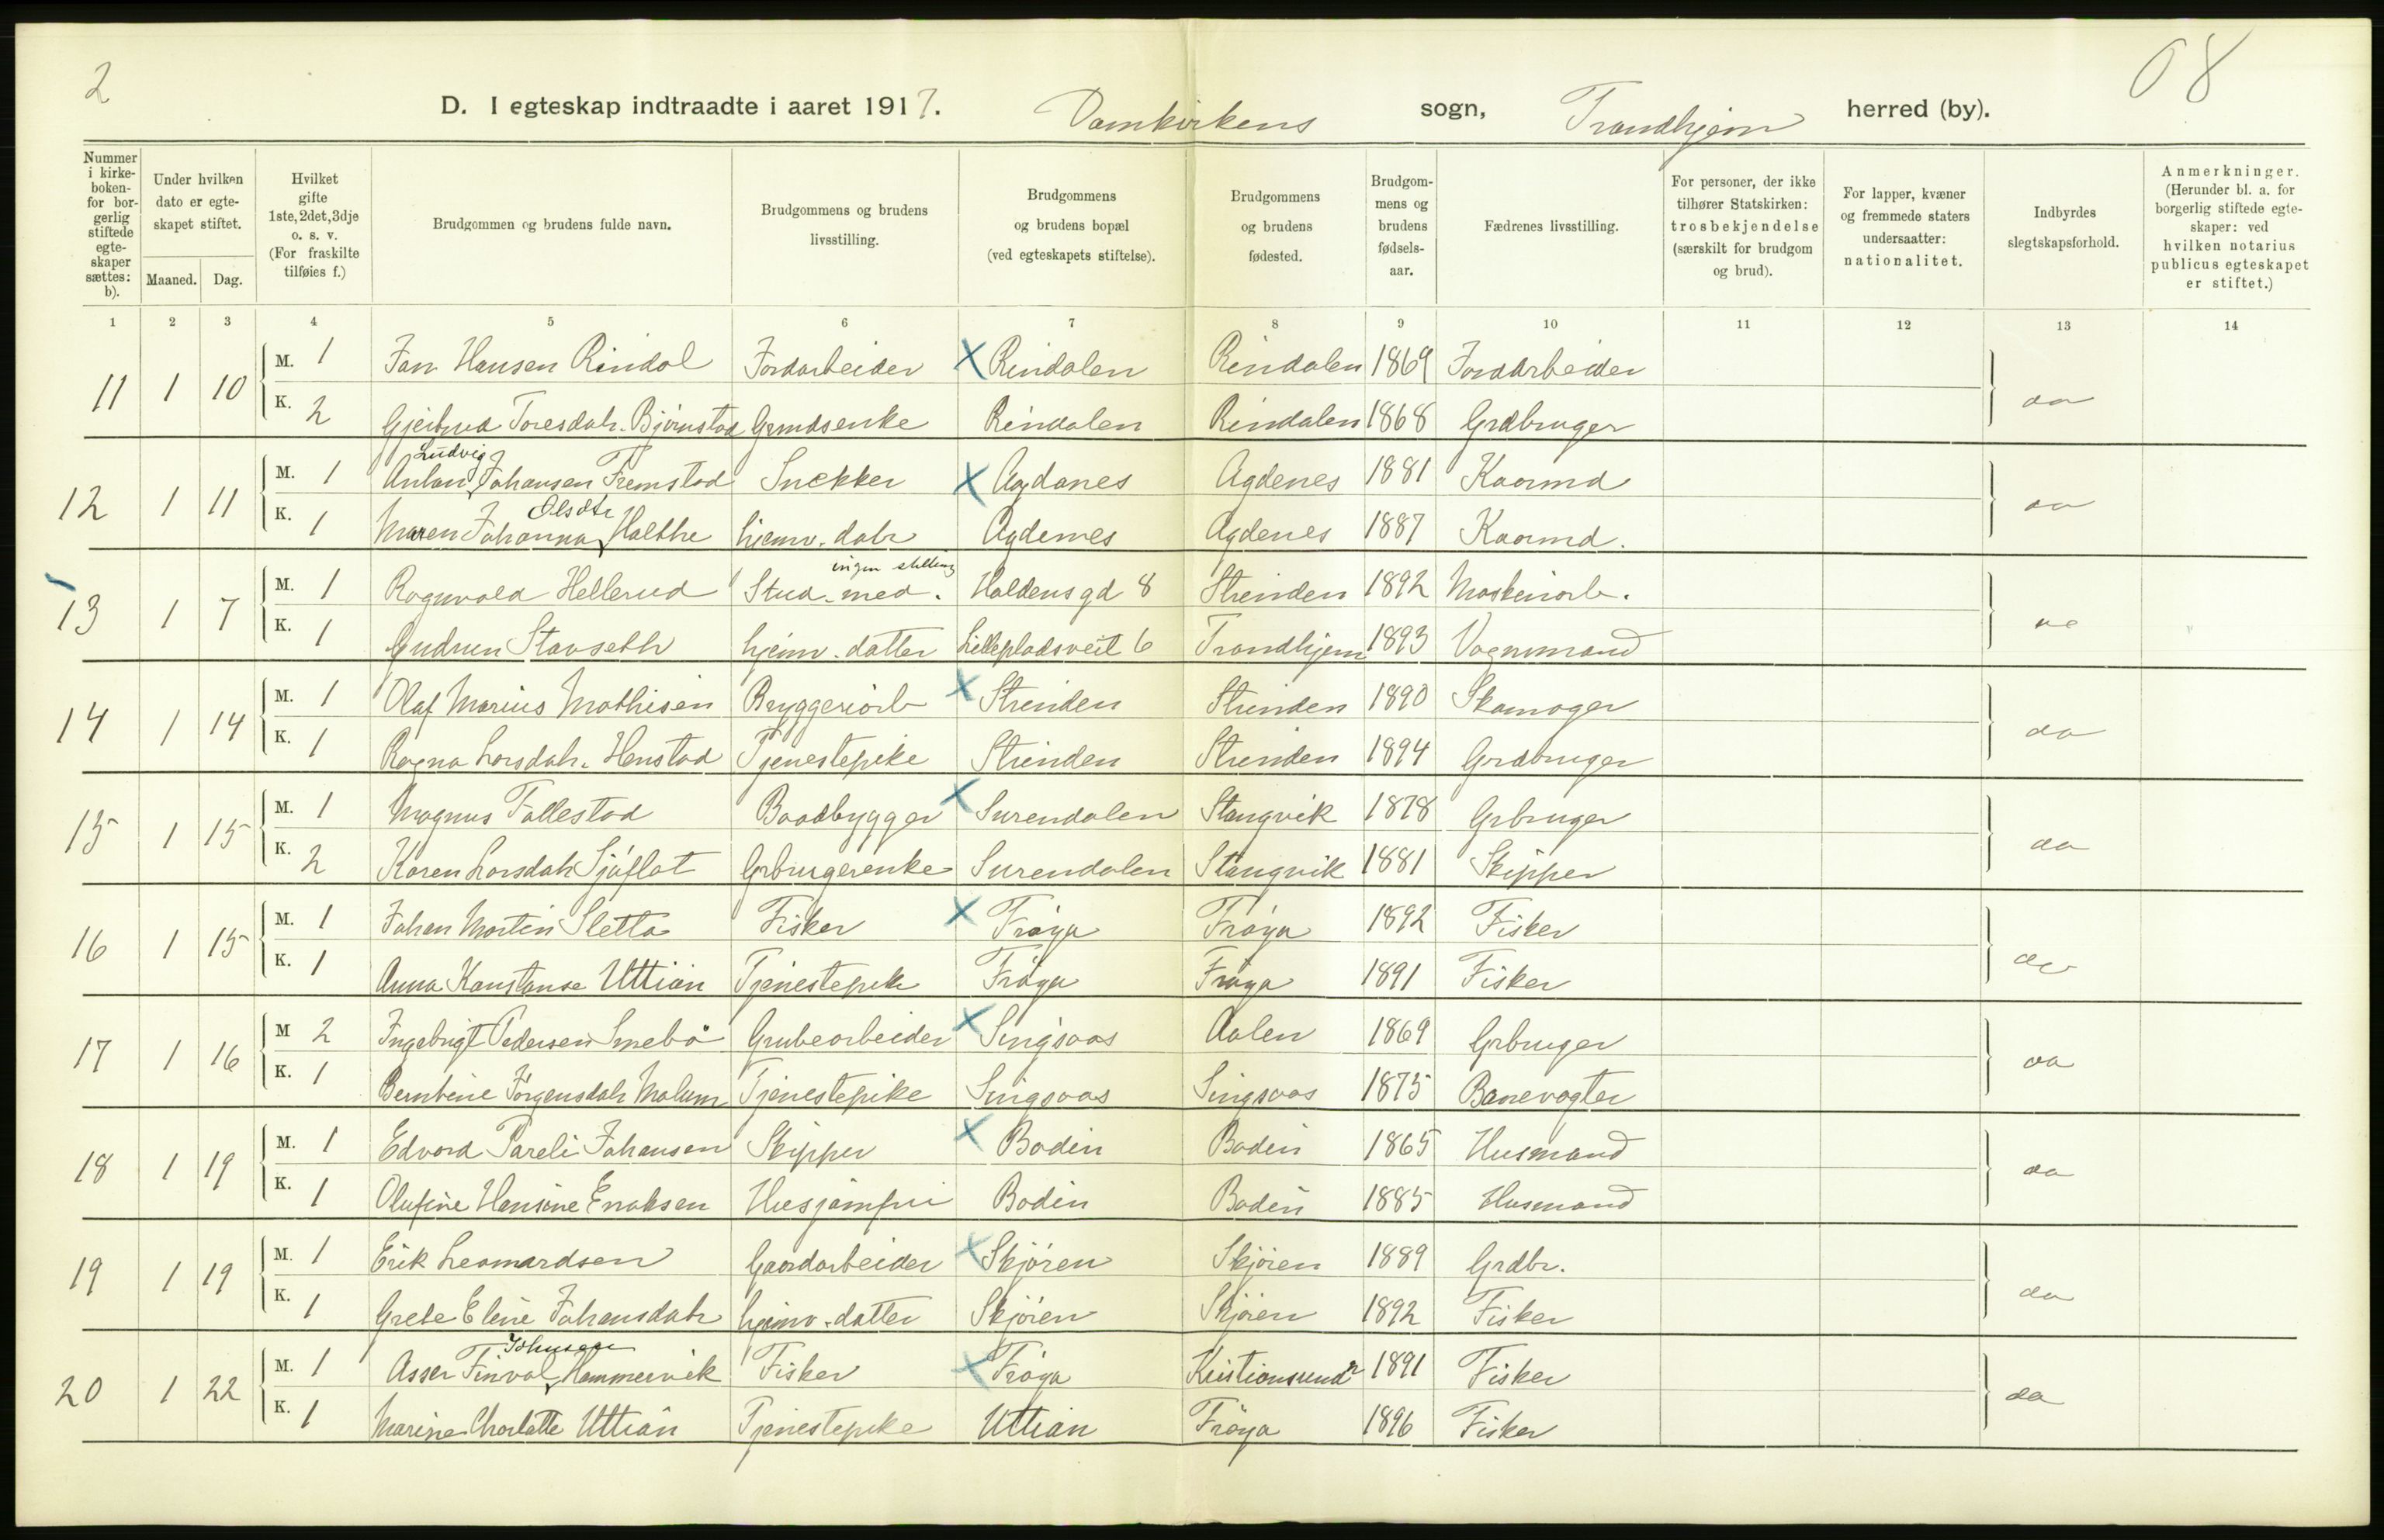 2
08
D. I egteskap indtraadte i aaret 1917. Domkirkens sogn, Trondhjem herred (by).
Nummer i kirke-boken- for bor-gerlig stiftede egte-skaper sættes: b).
Under hvilken dato er egte-skapet stiftet.
Maaned. Dag.
Hvilket gifte 1ste, 2det, 3dje o. s. v. (For fraskilte tilføies f.)
Brudgommen og brudens fulde navn.
Brudgommens og brudens livsstilling.
Brudgommens og brudens bopæl (ved egteskapets stiftelse).
Brudgommens og brudens fødested.
Brudgom-mens og brudens fødsels-aar.
Fædrenes livsstilling.
For personer, der ikke tilhører Statskirken: trosbekjendelse (særskilt for brudgom og brud).
For lapper, kvæner og fremmede staters undersaatter: nationalitet.
Indbyrdes slegtskapsforhold.
Anmerkninger. (Herunder bl. a. for borgerlig stiftede egte-skaper: ved hvilken notarius publicus egteskapet er stiftet.)
1 2 3 4 5 6 7 8 9 10 11 12 13 14
11 1 10 M. 1 Jon Hansen Rindal Jordarbeider X Rindalen Rindalen 1869 Jordarbeider
K. 2 Gjertrud Toresdatr. Bjørnstad Grmdsenke Rindalen Rindalen 1868 Grdbruger
Ludvig
12 1 11 M. 1 Anton Johansen Fremstad Snekker X Agdenes Agdenes 1881 Kaarmd
Olsdtr
K. 1 Maren Johanna Halthe hjemv. datr Agdenes Agdenes 1887 Kaarmd.
ingen stilling
13 1 7 M. 1 Rognvald Hellerud Stud. med. Haldensgd 8 Strinden 1892 Maskinarb. ne
K. 1 Gudrun Stavseth hjemv. datter Lillepladsveit 6 Trondhjem 1893 Vognmand
14 1 14 M. 1 Olaf Marius Mathisen Bryggeriarb X Strinden Strinden 1890 Skomager do
K. 1 Ragna Larsdatr. Henstad Tjenestepike Strinden Strinden 1894 Grdbruger
15 1 15 M. 1 Magnus Tollestad Baadbygger X Surendalen Stangvik 1878 Grbruger do
K. 2 Karen Larsdatr Sjøflot Grbrugerenke Surendalen Stangvik 1881 Skipper
16 1 15 M. 1 Johan Martin Sletta Fisker X Frøya Frøya 1892 Fisker do
K. 1 Anna Konstanse Uttian Tjenestepik Frøya Frøya 1891 Fisker
17 1 16 M 2 Ingebrigt Pedersen Smebø Grubearbeider X Singsaas Aalen 1869 Grbruger do
K. 1 Berntine Jørgensdatr Malum Tjenestepike Singsaas Singsaas 1875 Banevogter
18 1 19 M. 1 Edvard Pareli Johansen Skipper X Bodin Bodin 1865 Husmand do
K. 1 Olufine Hansine Enoksen Husjomfru Bodin Bodin 1885 Husmand
19 1 19 M. 1 Erik Leonardsen Gaardarbeider X Skjören Skjören 1889 Grdbr. do
K. 1 Grete Eline Johansdatr hjemv. datter Skjören Skjören 1892 Fisker
Johnsen
20 1 22 M. 1 Asser Finval Hammervik Fisker X Frøya Kristiansund n 1891 Fisker do
K. 1 Marine Charlotte Uttian Tjenestepike Uttian Frøya 1896 Fisker